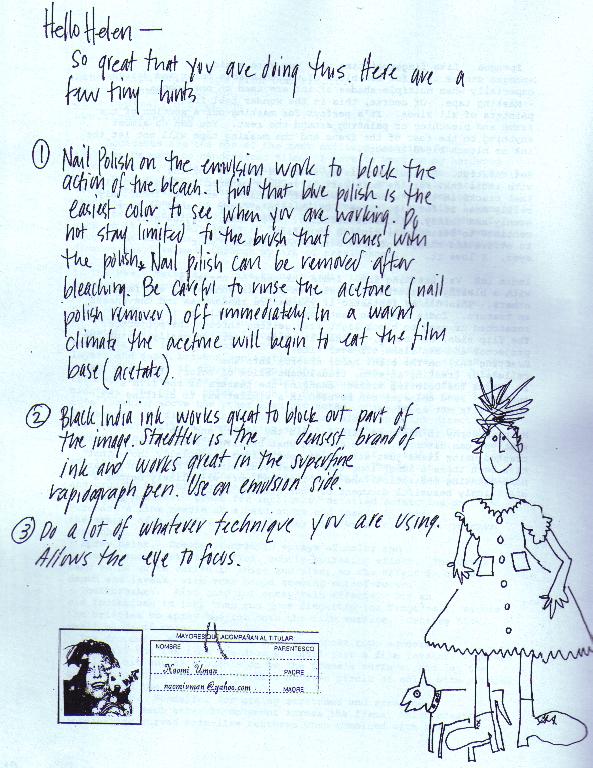 Hello Helen —
So great that you are doing this. Here are a
few tiny hints
① Nail Polish on the emulsion work to block the
action of the bleach. I find that blue polish is the
easiest color to see when you are working. Do
not stay limited to the brush that comes with
the polish. Nail polish can be removed after
bleaching. Be careful to rinse the acetone (nail
polish remover) off immediately. In a warm
climate the acetone will begin to eat the film
base (acetate).
② Black India ink works great to block out part of
the image. Staedtler is the densest brand of
ink and works great in the superfine
rapidograph pen. Use on emulsion side.
③ Do a lot of whatever technique you are using.
Allows the eye to focus.
MAYORES QUE ACOMPAÑAN AL TITULAR
NOMBRE PARENTESCO
Naomi Uman PADRE
naomiuman@yahoo.com MADRE